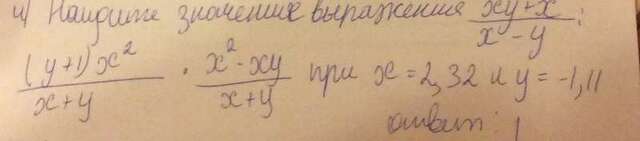 4) Найдите значение выражения (xy+x)/(x-y) :
((y+1)x²)/(x+y) · (x²-xy)/(x+y) при x=2,32 и y=-1,11
ответ: 1